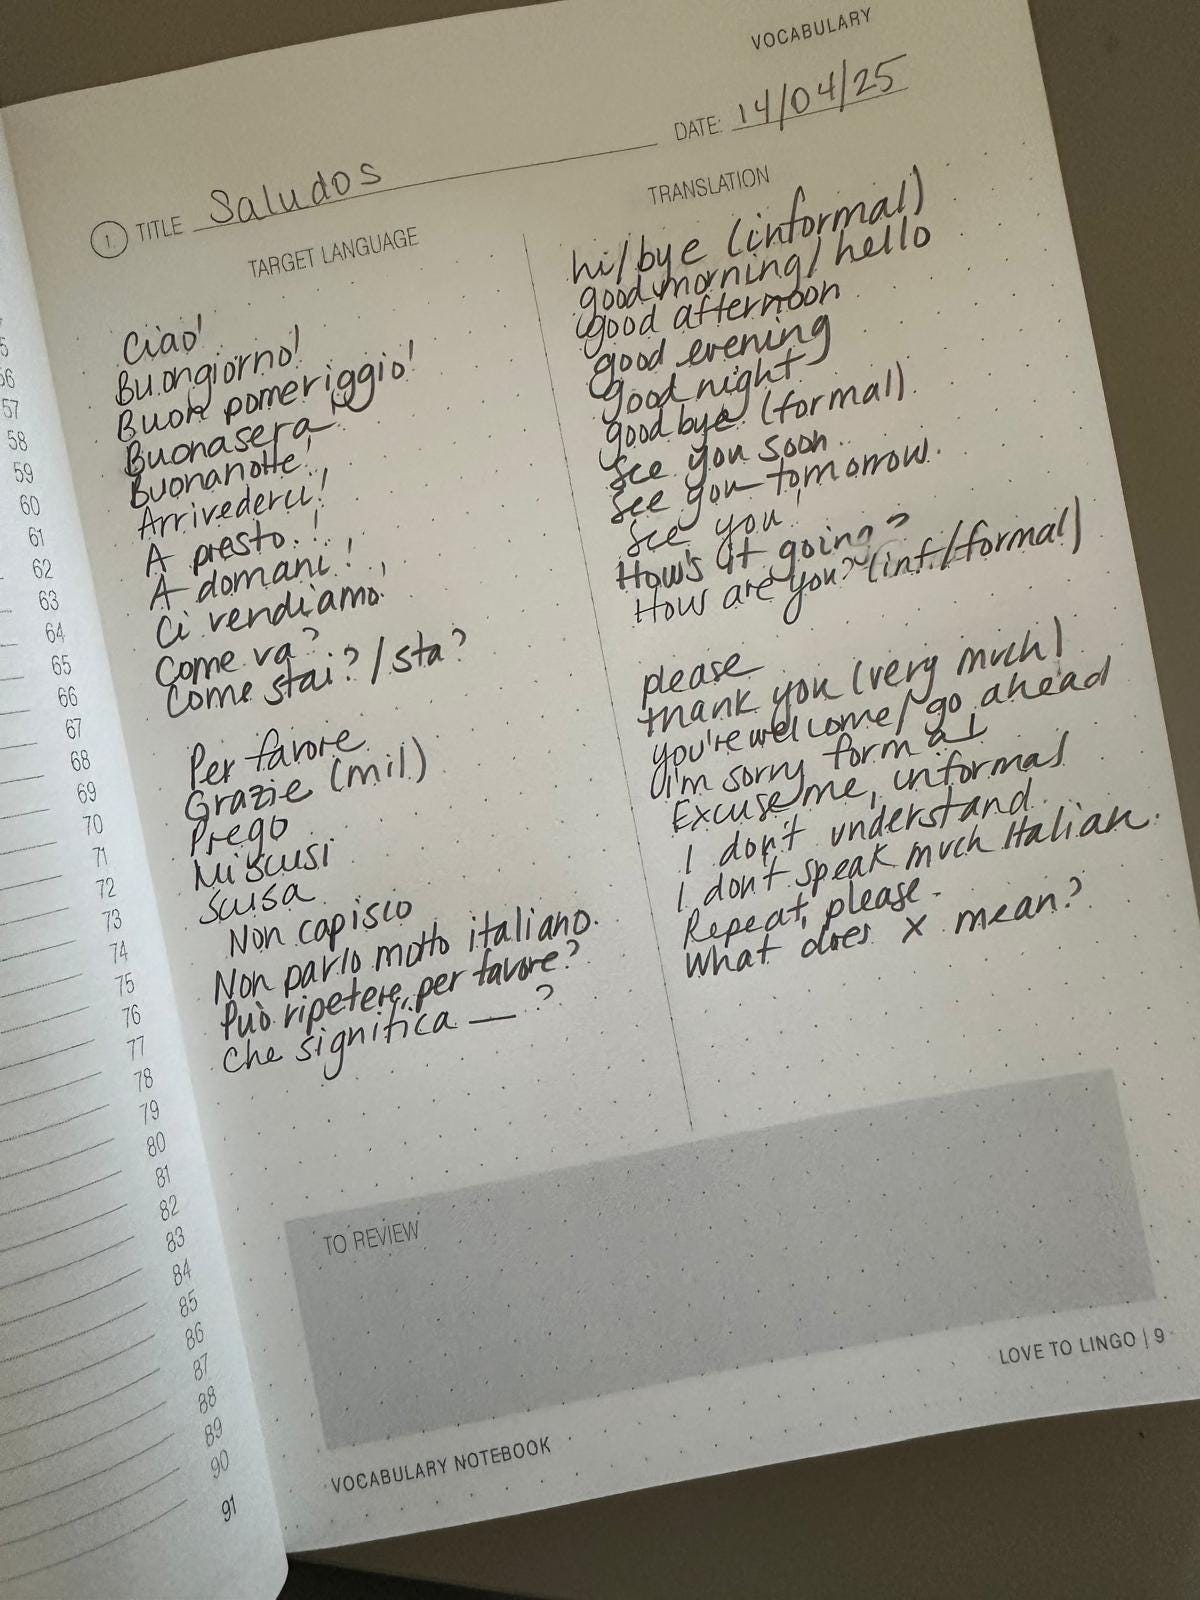 VOCABULARY
DATE: 14/04/25
1. TITLE Saludos
TARGET LANGUAGE
Ciao!
Buongiorno!
Buon pomeriggio!
Buonasera
Buonanotte!
Arrivederci!
A presto.!
A domani!
Ci vendiamo!
Come va?
Come stai?/sta?
Per favore
Grazie (mil)
Prego
Mi scusi
Scusa
Non capisco
Non parlo molto italiano.
Può ripetere, per favore?
Che significa __?
TRANSLATION
hi/bye (informal)
good morning/hello
good afternoon
good evening
good night
goodbye (formal)
See you soon
See you tomorrow.
See you!
How's it going?
How are you? (inf./formal)
please
thank you (very much)
you're welcome/go ahead
I'm sorry formal
Excuse me, informal
I don't understand.
I don't speak much Italian.
Repeat, please.
What does X mean?
TO REVIEW
LOVE TO LINGO | 9
VOCABULARY NOTEBOOK
57
58
59
60
61
62
63
64
65
66
67
68
69
70
71
72
73
74
75
76
77
78
79
80
81
82
83
84
85
86
87
88
89
90
91